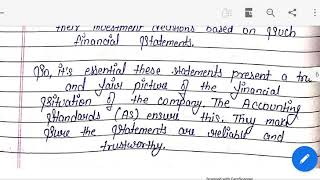 their investment decisions based on such
financial statements.
So, it's essential these statements present a tru
and fair picture of the financial
situation of the company. The Accounting
Standards (AS) ensure this. They make
sure the statements are reliable and
trustworthy.
Scanned with CamScanner